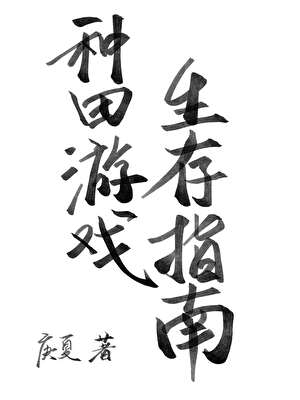 种田游戏
生存指南
庚夏 著